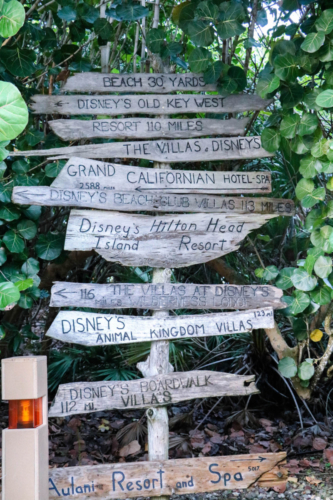 BEACH 30 YARDS
← DISNEY'S OLD KEY WEST
RESORT 110 MILES
THE VILLAS, DISNEYS
GRAND CALIFORNIAN HOTEL & SPA
2588
DISNEY'S BEACH CLUB VILLAS 113 MILES
Disney's Hilton Head
Island Resort
← 116 THE VILLAS AT DISNEY'S
MILES WILDERNESS LODGE
DISNEY'S 123 mi
ANIMAL KINGDOM VILLAS
DISNEY'S BOARDWALK
112 MI. VILLA'S
Aulani Resort and Spa